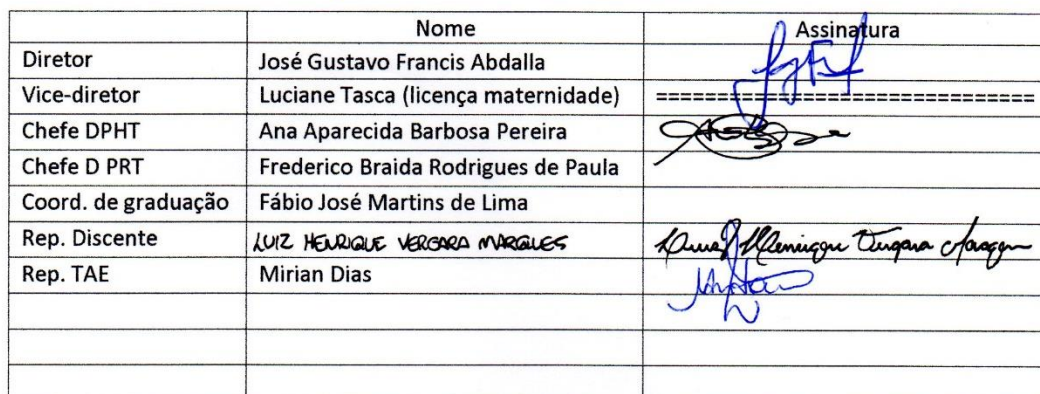 Nome Assinatura
Diretor José Gustavo Francis Abdalla
Vice-diretor Luciane Tasca (licença maternidade) ==================================
Chefe DPHT Ana Aparecida Barbosa Pereira
Chefe D PRT Frederico Braida Rodrigues de Paula
Coord. de graduação Fábio José Martins de Lima
Rep. Discente LUIZ HENRIQUE VERGARA MARQUES Luiz Henrique Vergara Marques
Rep. TAE Mirian Dias